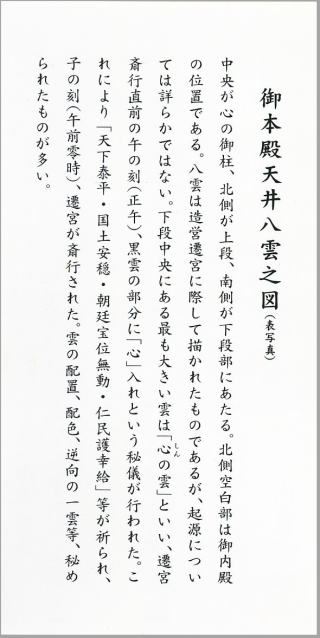 御本殿天井八雲之図（表写真）
中央が心の御柱、北側が上段、南側が下段部にあたる。北側空白部は御内殿
の位置である。八雲は造営遷宮に際して描かれたものであるが、起源につい
ては詳らかではない。下段中央にある最も大きい雲は「心の雲」といい、遷宮
斎行直前の午の刻（正午）、黒雲の部分に「心」入れという秘儀が行われた。こ
れにより「天下泰平・国土安穏・朝廷宝位無動・仁民護幸給」等が祈られ、
子の刻（午前零時）、遷宮が斎行された。雲の配置、配色、逆向の一雲等、秘め
られたものが多い。